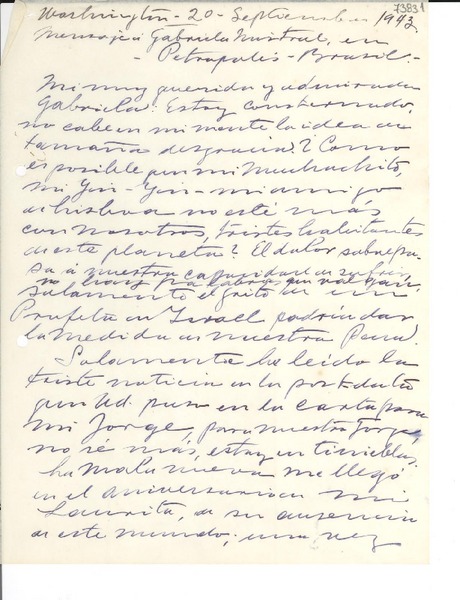 73831
Washington - 20 - Septiembre 1943
Mensaje á Gabriela Mistral, en
- Petrópolis - Brasil. -
Mi muy querida y admirada
Gabriela: Estoy consternado,
no cabe en mi mente la idea de
tamaña desgracia? Como
és posible que mi muchachito,
mi Yin-Yin - mi amigo
de Lisboa no esté más
con nosotros, tristes habitantes
de este planeta? El dolor sobrepa-
sa á nuestra capacidad de sufrir,
no hay palabras que valgan,
solamente el grito de un
Profeta en Israel podrín dar
la medida de nuestra Pena!
Solamente he leido la
triste noticia en la postdata
que Ud. puso en la carta para
mi Jorge, para nuestro Jorge,
no sé más, estoy en tinieblas.
La mala nueva me llegó
en el aniversario de mi
Laurita, de su ausencia
de este mundo; una vez